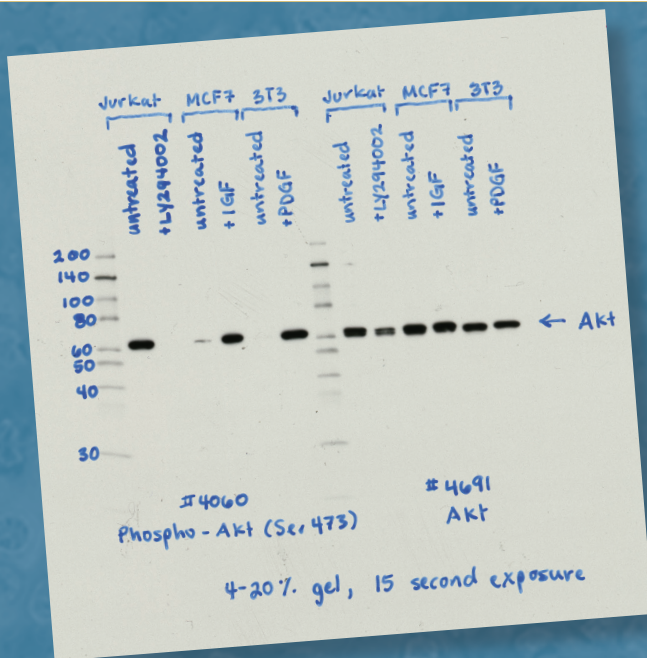 Jurkat MCF7 3T3 Jurkat MCF7 3T3
untreated +LY294002 untreated +IGF untreated +PDGF untreated +LY294002 untreated +IGF untreated +PDGF
200
140
100
80
60
50
40
30
← Akt
#4060
Phospho-Akt (Ser 473)
#4691
Akt
4-20% gel, 15 second exposure